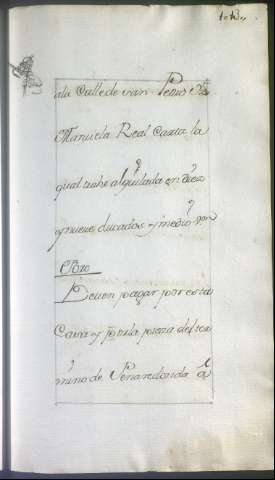 ala Calle de san Pedro Da
Manuela Real Carta la
qual tiene alquilada en diez
y nueve ducados y medio von
Otro
Deven pagar por esta
Casa y por la pieza del ter
mino de Penaredonda a